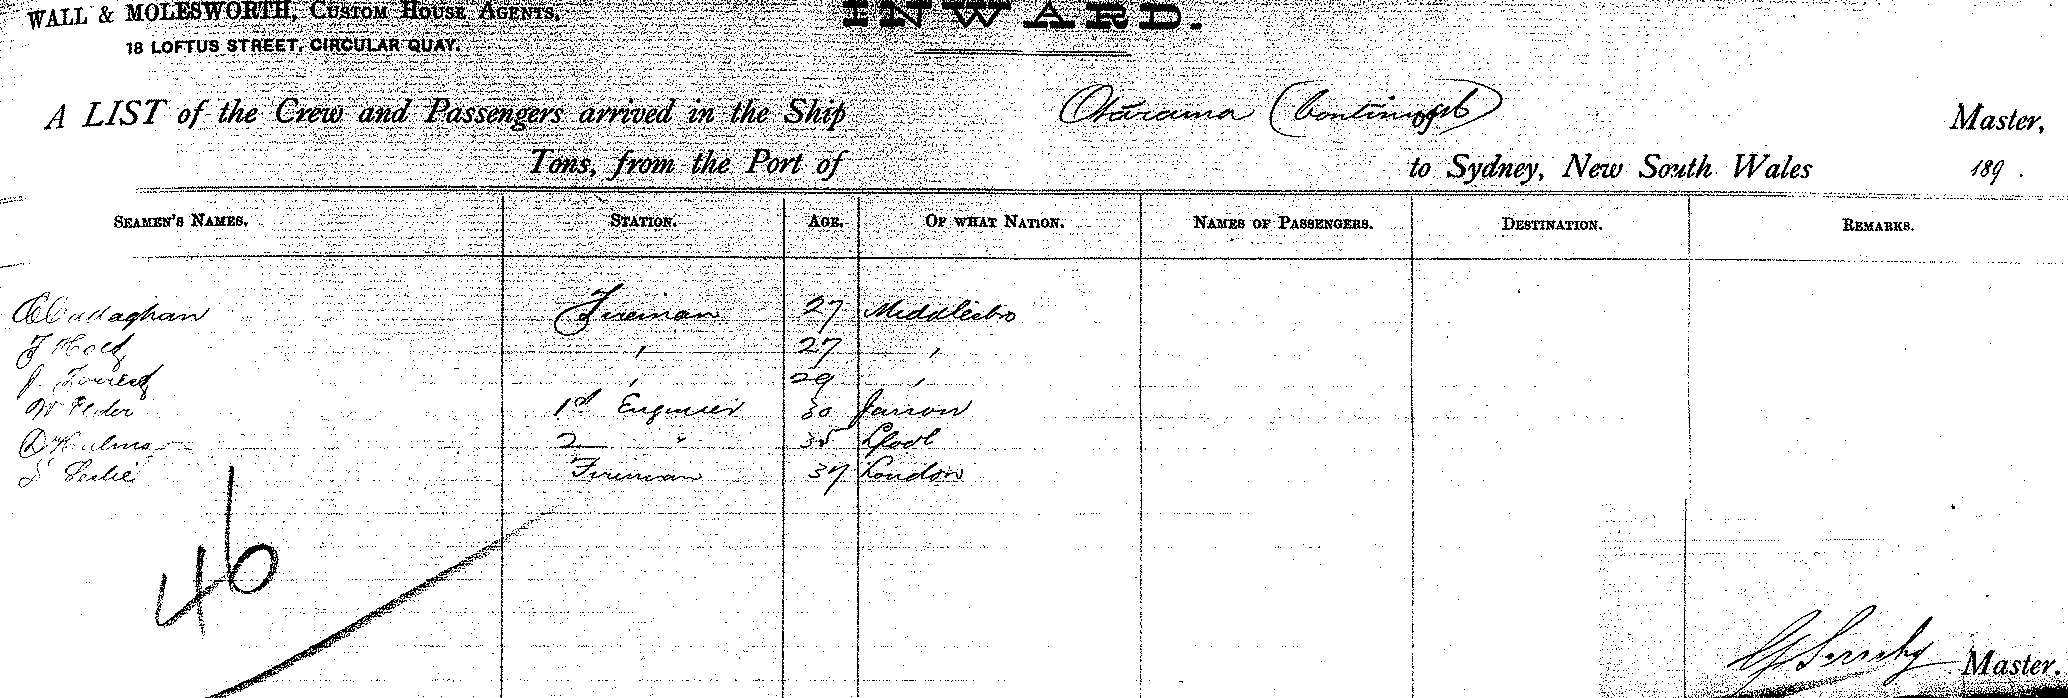 WALL & MOLESWORTH, CUSTOM HOUSE AGENTS,
18 LOFTUS STREET, CIRCULAR QUAY.
INWARD.
A LIST of the Crew and Passengers arrived in the Ship Master,
Tons, from the Port of to Sydney, New South Wales 189 .
SEAMEN'S NAMES. STATION. AGE. OF WHAT NATION. NAMES OF PASSENGERS. DESTINATION. REMARKS.
Callaghan Fireman 27 Middlesbro
J Holt " 27 "
J. Forrest " 29 "
W 1st Engineer 30 Jarrow
2 " 35 Lpool
Leslie Fireman 37 London
46
Master.